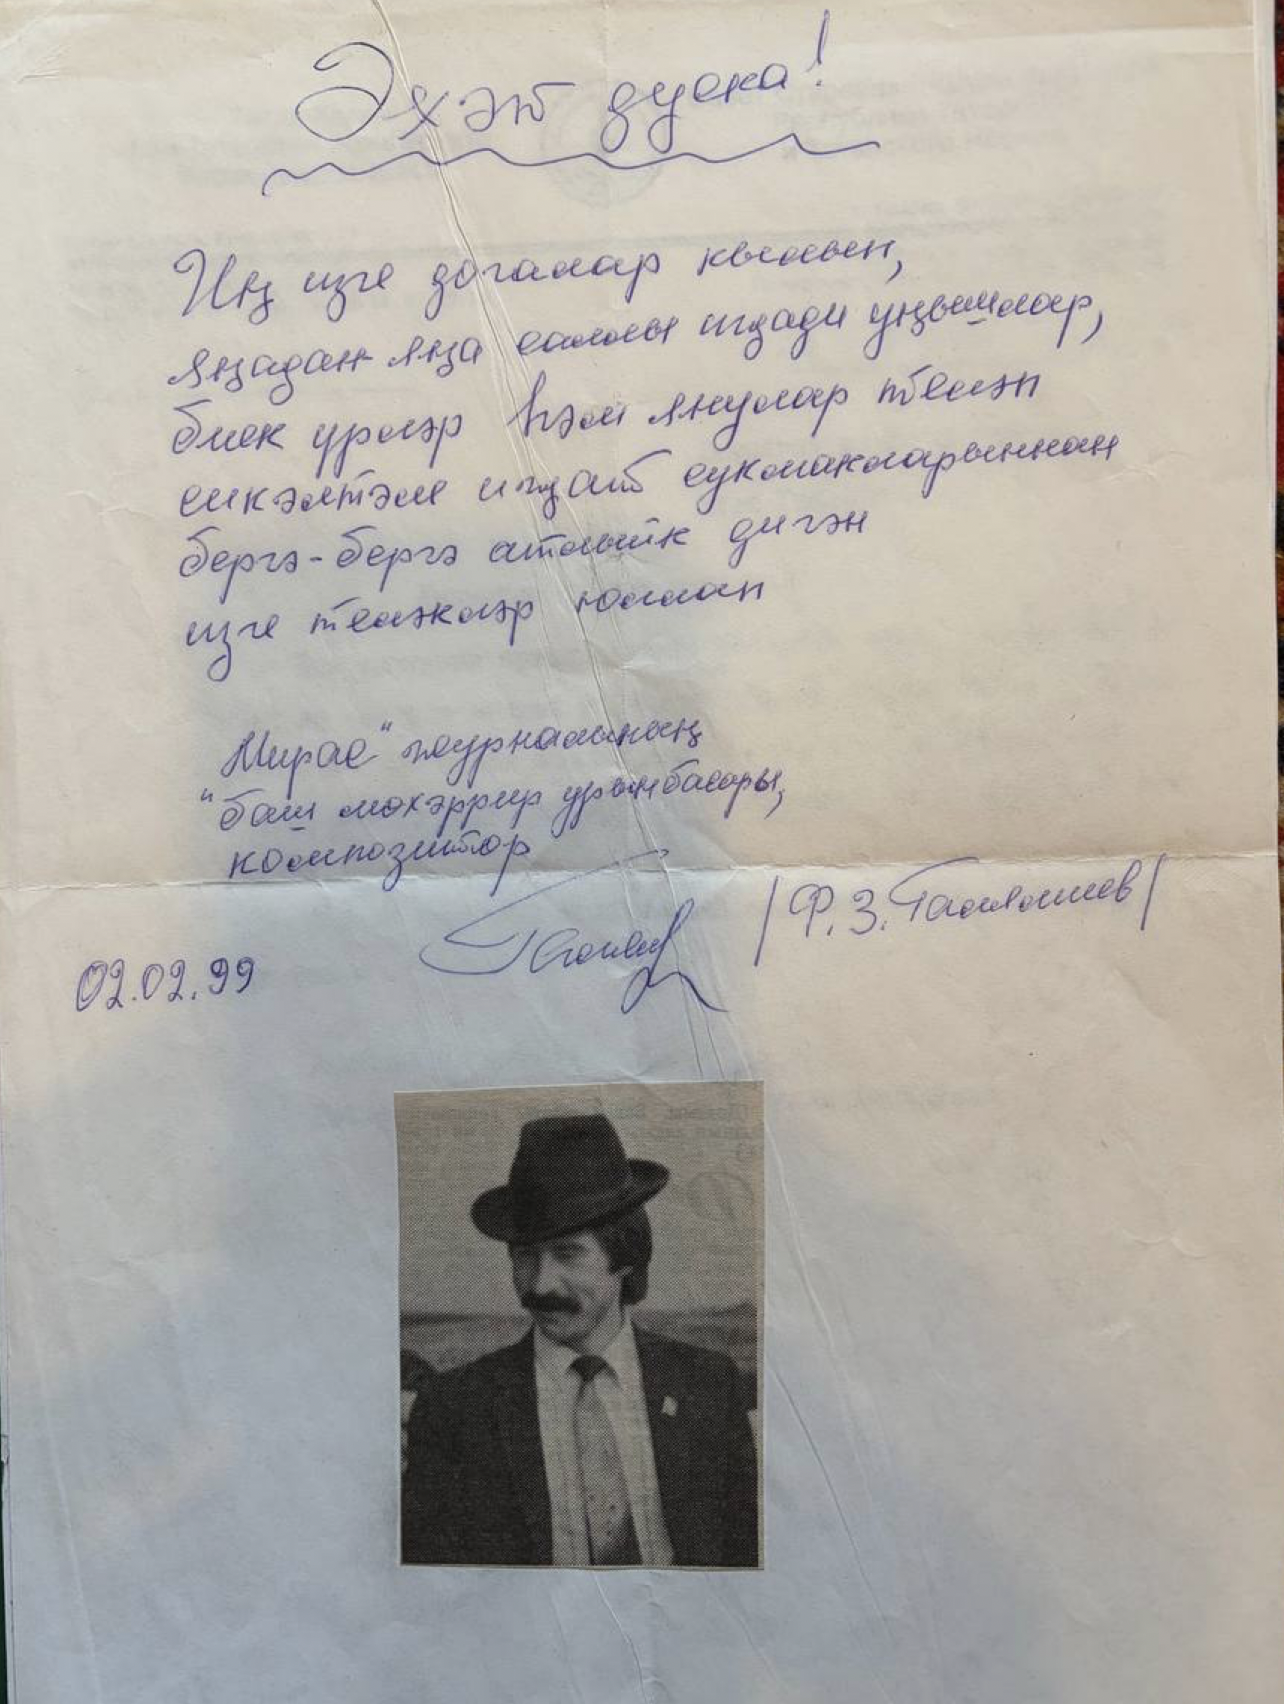 Әхәт дуска!
Иң изге догалар кылып,
яңадан-яңа саллы иҗади уңышлар,
биек үрләр һәм янулар теләп
сикәлтәле иҗат сукмакларыннан
бергә-бергә атлыйк дигән
изге теләкләр юллап
Мирас" журналының
"баш мөхәррир урынбасары,
композитор
/Ф.З. /
02.02.99